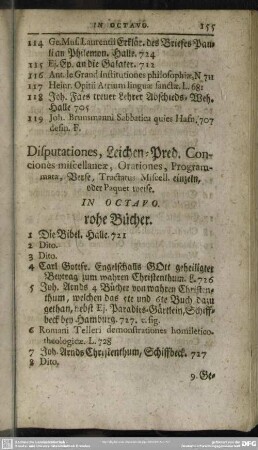 IN OCTAVO. 155
114 Ge. Mich. Laurentii Erklär. des Briefes Pauli an Philemon. Halle. 724
115 Ej. Ep. an die Galater. 712
116 Ant. le Grand institutiones philosophiæ. N. 711
117 Heinr. Opitii Atrium linguæ sanctæ. L. 681
118 Joh. Faes treuer Lehrer Abschieds-Weh.
Halle 705
119 Joh. Brunsmanni Sabbatica quies Hafn. 707
desin. F.
Disputationes, Leichen-Pred. Con-
ciones miscellaneæ, Orationes, Program-
mata, Verse, Tractatus Miscell. einzeln,
oder Paquet weise.
IN OCTAVO.
rohe Bücher.
1 Die Bibel. Halle. 721
2 Dito.
3 Dito.
4 Carl Gottfr. Engelschalls GOtt geheiligter
Beytrag zum wahren Christenthum. L. 716
5 Joh. Arnds 4 Bücher von wahren Christen-
thum, welchen das 5te und 6te Buch dazu
gethan, nebst Ej. Paradis-Gärtlein, Schiff-
beck bey Hamburg. 717. c. fig.
6 Romani Telleri demonstrationes homiletico-
theologicæ. L. 728
7 Joh. Arnds Christenthum, Schiffbeck. 717
8 Dito.
9. Ge-